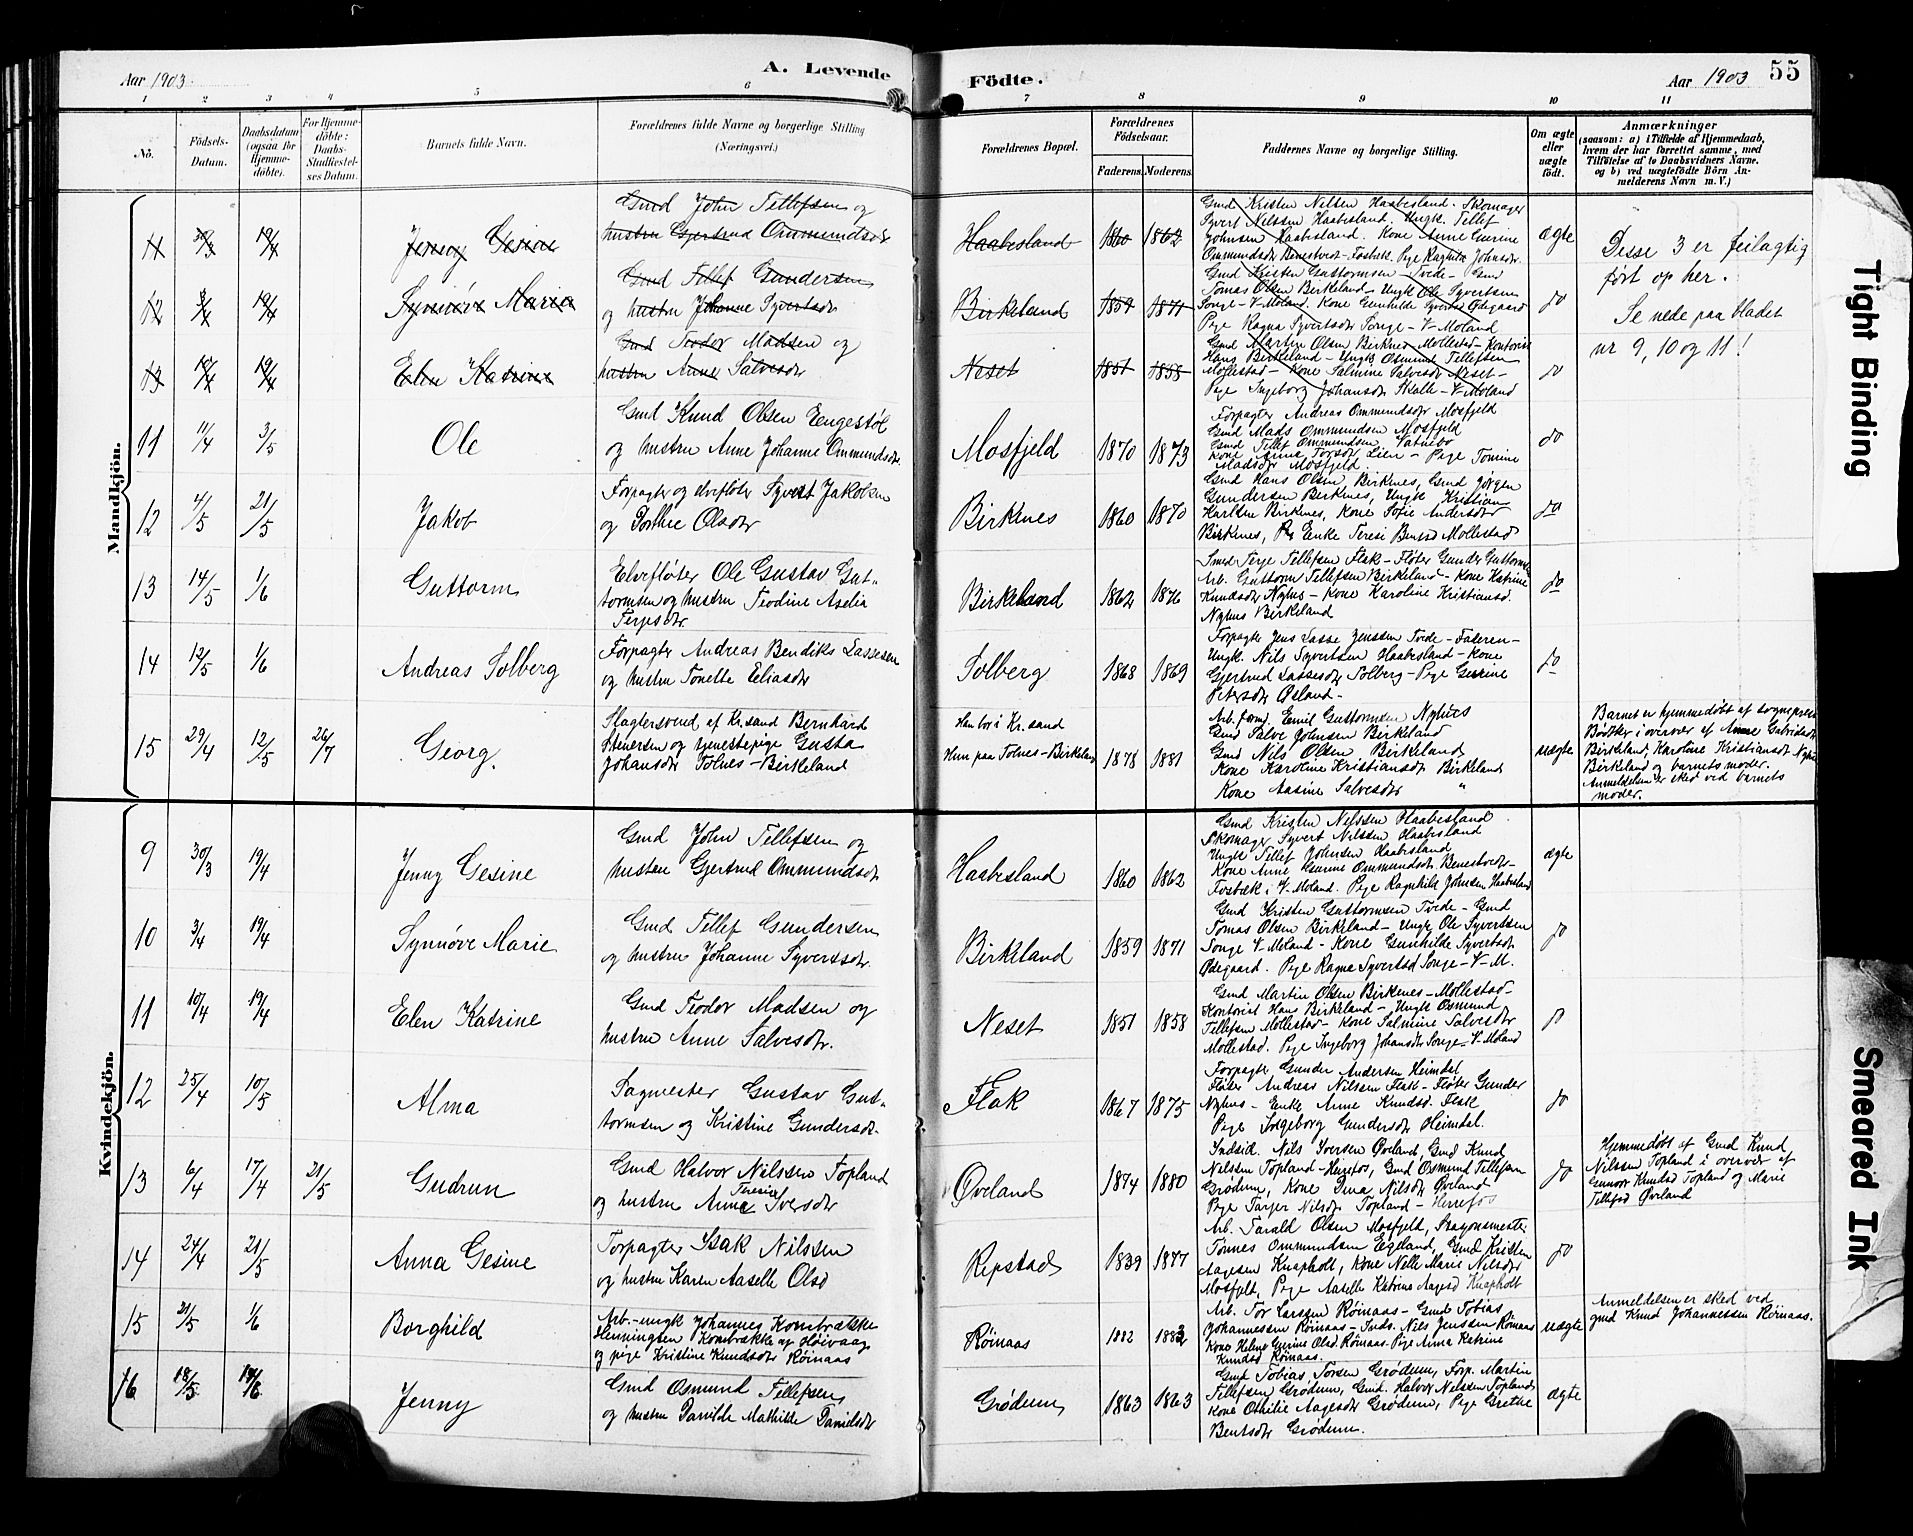 Aar 1903
A. Levende
Födte.
Aar 1903
55
1 2 3 4 5 6 7 8 9 10 11
No.
Födsels-
Datum.
Daabsdatum
(ogsaa for
Hjemme-
döbte).
For Hjemme-
döbte:
Daabs-
Stadfæstel-
ses Datum.
Barnets fulde Navn.
Forældrenes fulde Navne og borgerlige Stilling
(Næringsvei.)
Forældrenes Bopæl.
Forældrenes
Födselsaar.
Faderens Moderens
Faddernes Navne og borgerlige Stilling.
Om ægte
eller
uægte
født.
Anmærkninger
(saasom: a) i Tilfælde af Hjemmedaab,
hvem der har forrettet samme, med
Tilföielse af to Daabsvidners Navne.
og b) ved uægtefödte Börn An-
melderens Navn m. V.)
Mandkjön.
11 30/3 19/4 Jenny Gesine
Gmd John Tellefsen og
hustru Gjertrud Ommundsdtr
Haabesland 1860 1862
Gmd Kristen Nilsen Haabesland. Skomager
Syvert Nilssen Haabesland. Ungk. Tellef
Johnsen Haabesland. Kone Anne Gurine
Ommundsdtr Benestvedt-Fosbæk. Pige Ragnhild Johnsdtr.
ægte
Desse 3 er feilagtig
ført op her.
Se nede paa bladet
nr 9, 10 og 11!
12 3/4 19/4 Synnøve Marie
Gmd Tellef Gundersen
og hustru Johanne Syvertsdtr
Birkeland 1859 1871
Gmd Kristen Guttormsen - Tvede - Gmd
Tomas Olsen Birkeland - Ungk Ole Syvertsen
Songe - V-Moland. Kone Gunhilde Syvertsdtr Ødegaard
Pige Ragna Syvertsdtr Songe - V-Moland
do
13 10/4 19/4 Elen Katrine
Gmd Teodor Madsen og
hustru Anne Salvesdtr
Neset 1851 1858
Gmd Martin Olsen Birknes Mollestad - Kontorist
Hans Birkeland - Ungk Osmund Tellefsen
Mollestad - Kone Salmine Salvesdtr Neset -
Pige Ingeborg Johansdtr Skalle - V-Moland
do
11 11/4 3/5 Ole
Gmd Knud Olsen Engestøl
og hustru Anne Johanne Ommundsdtr.
Mosfjeld 1870 1873
Forpagter Andreas Ommundsdtr Mosfjeld
Gmd Mads Ommundsen Mosfjeld
Gmd Tellef Ommundsen, Vatnebo
Kone Anne Torsdtr Lien - Pige Tomine
Madsdtr Mosfjeld.
do
12 4/5 21/5 Jakob
Forpagter og elvefløter Syvert Jakobsen
og Dorthe Olsdtr
Birknes 1860 1870
Gmd Hans Olsen, Birknes, Gmd Jörgen
Gundersen Birknes, Ungk Kristian
Karlsen Birknes, Kone Sofie Andersdtr
Birknes, Pg Enke Teresi Bentsd Mollestad
do
13 14/5 1/6 Guttorm
Elvefløter Ole Gustav Gut-
tormsen og hustru Teodine Aselia
Terjesdtr.
Birkeland 1862 1876
Smed Terje Tellefsen Flak - Fløter Gunder Guttormsen
Arb. Guttorm Tellefsen Birkeland - Kone Katrine
Knudsdtr Nyhus - Kone Karoline Kristiansd.
Nyhus Birkeland
do
14 12/5 1/6 Andreas Solberg
Forpagter Andreas Bendiks Lassesen
og hustru Tonette Eliasdtr
Solberg 1868 1869
Forpagter Jens Lasse Jenssen Tvede - Faderen -
Ungk. Nils Syvertsen Haabesland - Kone
Gjertrud Lassesdtr Solberg - Pige Gesine
Petersdtr Øsland -
do
15 29/4 12/5 26/7 Georg.
Slagtersvend af Kr.sand Bernhard
Steinersen og tjenestepige Gusta
Johansdtr Tolnes - Birkeland
Han bor i Kr.sand
Hun paa Tolnes - Birkeland 1878 1881
Arb. form. Emil Guttormsen Nyhus
Gmd Salve Johnsen Birkeland
Gmd Nils Olsen Birkeland
Kone Karoline Kristiansdtr Birkeland
Kone Aasine Salvesdtr "
uægte
Barnet er hjemmedøbt af sogneprest
Bødtker i overvær af Anne Gabrielsdtr
Birkeland, Karoline Kristiansdtr Nyhus
Birkeland og barnets moder.
Anmeldelsen er sked ved barnets
moder.
Kvindekjön.
9 30/3 19/4 Jenny Gesine
Gmd John Tellefsen og
hustru Gjertrud Ommundsdtr
Haabesland 1860 1862
Gmd Kristen Nelssen Haabesland
Skomager Syvert Nilssen Haabesland
Ungk Tellef Johnsen Haabesland
Kone Anne Gurine Ommundsdtr Benestvedt -
Fosbæk i V-Moland. Pige Ragnhild Johnsen Haabesland
ægte
10 3/4 19/4 Synnøve Marie
Gmd Tellef Gundersen
og hustru Johanne Syvertsdtr.
Birkeland 1859 1871
Gmd Kristen Guttormsen Tvede - Gmd
Tomas Olsen Birkeland - Ungk Ole Syvertsen
Songe V-Moland - Kone Gunhilde Syvertsdtr
Ødegaard. Pige Ragna Syvertsd Songe - V-M.
do
11 10/4 19/4 Elen Katrine
Gmd Teodor Madsen og
hustru Anne Salvesdtr.
Neset 1851 1858
Gmd Martin Olsen Birknes - Mollestad -
Kontorist Hans Birkeland - Ungk Osmund
Tellefsen Mollestad - Kone Salmine Salvesdtr
Mollestad. Pige Ingeborg Johansdtr Songe V-Moland
do
12 25/4 10/5 Alma
Sagmester Gustav Gut-
tormsen og Kristine Gundersdt.
Flak 1867 1875
Forpagter Gunder Andersen Heimdal
Fløter Andreas Nilssen Flak - Fløter Gunder
Nyhus - Enke Anne Knudsd. Flak
Pige Ingeborg Gundersdtr Heimdal.
do
13 6/4 17/4 21/5 Gudrun
Gmd Halvor Nilssen Topland
og hustru Anna Teresie Iversdtr
Øveland 1874 1880
Indsid. Nils Iversen Øvland, Gmd Knud
Nilssen Topland - Herefos, Gmd Osmund Tellefsen
Grødum, Kone Dina Nilsdtr Øvland
Pige Tarjer Nilsdtr Topland - Herefos
do
Hjemmedøbt af Gmd Knud
Nilssen Topland i overvær af
Gunvor Knudsd Topland og Marie
Tellefsd Øvland
14 24/4 21/5 Anna Gesine
Forpagter Isak Nilssen
og hustru Karen Aaselle Olsd
Repstad 1839 1847
Arb. Tarald Olsen Mosfjeld, Dragonmester
Tönnes Ommundsen Egeland, Gmd Kristen
Aagesen Knapholt, Kone Nelle Marie Nilsdtr
Mosfjelt, Pige Aaselle Katrine Aagesd Knapholt
do
15 21/5 1/6 Borghild
Arb. - ungk Johannes Kornbrække
Henningsen Kornbrække af Høivaag
og pige Kristine Knudsdtr Røinaas
Røinaas 1882 1882
Arb. Tor Larssen Røinaas - Gmd Tobias
Johannessen Røinaas - Inds. Nils Jenssen Røinaas
Kone Helene Gurine Olsd. Røinaas. Pige Anna Katrine
Knudsd Røinaas.
uægte
Anmeldelsen er sked ved
gmd Knud Johannessen Røinaas.
16 18/5 14/6 Jenny
Gmd Osmund Tellefsen
og hustru Danilde Mathilde Danielsdtr
Grødum 1863 1863
Gmd Tobias Torsen Grødum, Forp. Martin
Tellefsen Grødum, Gmd. Halvor Nelssen Topland
Kone Othilie Aagesdtr Grødum, Pige Grethe
Bentsdtr Grødum.
ægte
Tight Binding
Smeared Ink